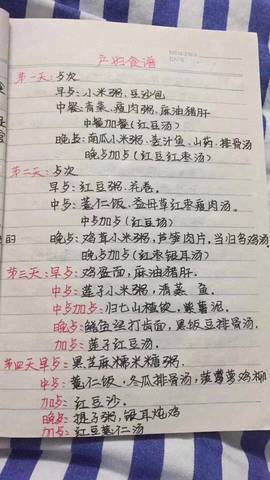 产妇食谱
第一天:5次
早点:小米粥、豆沙包
中餐:青菜、瘦肉粥、麻油猪肝
中餐加餐(红豆汤)
晚点:南瓜小米粥、姜汁鱼、山药、排骨汤
晚点加点(红豆红枣汤)
第二天:5次
早点:红豆粥、花卷。
中点:薏仁饭、益母草红枣瘦肉汤
中点加点(红豆汤)
晚点:鸡茸小米粥、芦笋肉片。当归乌鸡汤
晚点加点(红枣银耳汤)
第三天:早点:鸡蛋面,麻油猪肝.
中点:莲子小米粥,清蒸 鱼.
中点加点:归七山楂饮,紫薯泥.
晚点:鲶鱼 打卤面,黑板豆排骨汤.
加点:莲子红豆汤.
第四天早点:黑芝麻糯米糖粥.
中点:薏仁饭,冬瓜排骨汤,菠萝 鸡柳
加点:红豆沙.
晚点:提子粥,银耳炖鸡
加点:红豆薏仁汤